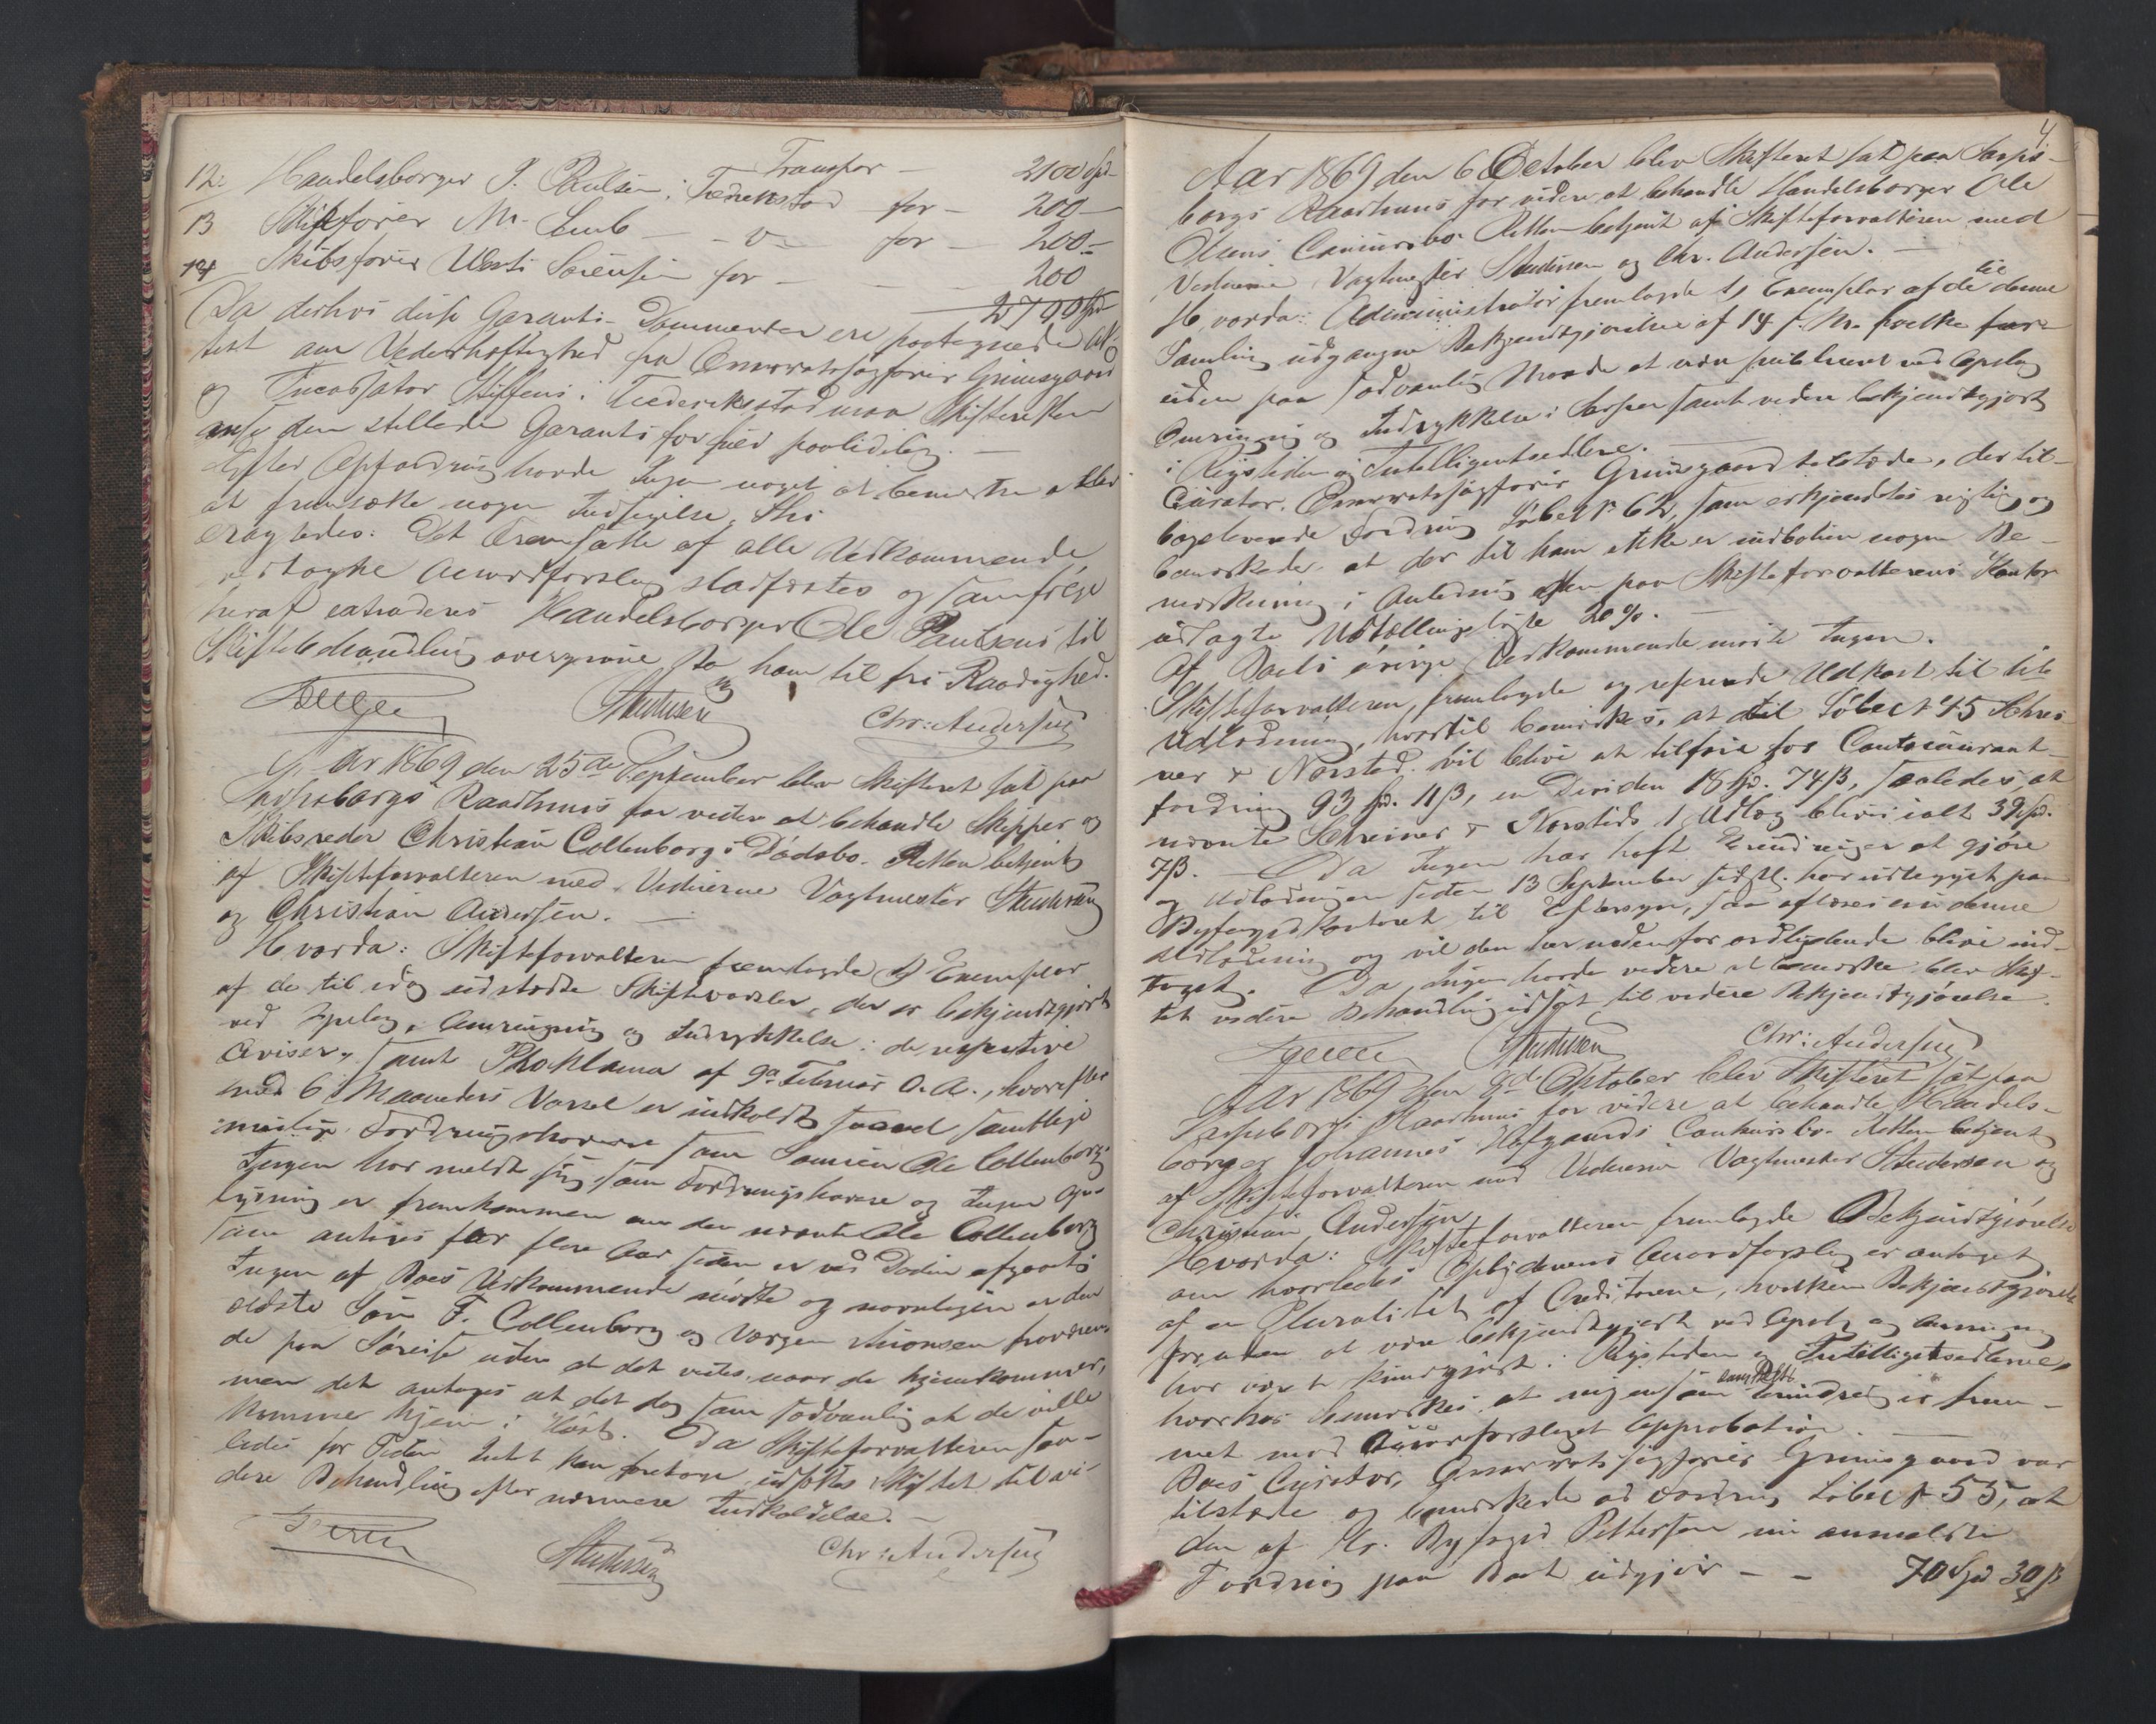 Transpor — 2100 Spd
12. Handelsborger J. Paulsen i Frederikstad for — 200 —
13 Skibsfører M. Lund — v — for — 200 —
14 Skibsfører Sørensen for — 200
2700 Spd
Da derhos disse Garanti-Documenter ere paategnede At-
test om Vederhæftighed fra Overretssagfører Grimsgaard
og Incassator Steffens i Frederikstad maa Skifteretten
anse den stillede Garanti for fuld paalidelig. —
Efter Opfordring havde Ingen noget at bemærke eller
at fremsætte nogen Indsigelse, thi
eragtedes: Det fremsatte af alle Vedkommende
vedtagne Accordforslag stadfæstes og som følge
heraf extraderes Handelsborger Ole Paulsens til
Skiftebehandling overgivne Bo ham til fri Raadighed.
Studersen Chr: Andersen
Aar 1869 den 25de September blev Skifteret sat paa
Sarpsborgs Raadhuus for videre at behandle Skipper og
Skibsreder Christian Collenborgs Dødsbo. Retten betjent
af Skifteforvalteren med Vidnerne Vagtmester Studersen
og Christian Andersen. —
Hvorda: Skifteforvalteren fremlagde 1 Exemplar
af de til idag udstedte Skiftevarsler, der er bekjendtgjort
ved Opslag, Omringning og Indrykkelse i de respective
Aviser, samt Proklama af 9de Februar d. A., hvorefter
med 6 Maaneders Varsel er indkaldt saavel samtlige
mulige Fordringshavere som Sønnen Ole Collenborg.
Ingen har meldt sig som Fordringshavere og Ingen Op-
lysning er fremkommen om den nævnte Ole Collenborg
som antages for flere Aar siden er ved Døden afgaaet.
Ingen af Boets Vedkommende mødte og navnligen er den
ældste Søn F. Collenborg og Værgen Simonsen fraværen-
de paa Søreise uden at det vides, naar de hjemkommer,
men det antages at det dog som sædvanlig at de ville
komme hjem i Høst. Da Skifteforvalteren saa-
ledes for Tiden Intet kan foretage, udsattes Skiftet til vi-
dere Behandling efter nærmere Indkaldelse. —
Studersen Chr: Andersen
4
Aar 1869 den 6 October blev Skifteret sat paa Sarps-
borgs Raadhuus for videre at behandle Handelsborger Ole
Olsens Concursbo. Retten betjent af Skifteforvalteren med
Vidnerne Vagtmester Studersen og Chr. Andersen. —
Hvorda: Administrator fremlagde 1 Exemplar af de til denne
Samling udgangne Bekjendtgjørelse af 14 f. M. hvilke for-
uden paa sædvanlig Maade at være publiceret ved Opslag
Omringning og Indrykkelse i Sarpen samt videre bekjendtgjort
i Rigstidenog Intelligentsedlerne.
Curator, Overretssagfører Grimsgaard tilstede, der til-
bageleverede Fordring Løbe No 62, som erkjendtes rigtig, og
bemærkede, at der til ham ikke er indløben nogen Be-
mærkning i Anledning af den paa Skifteforvalterens Kontor
udlagte Udtællingsliste 20%. —
Af Boets øvrige Vedkommende mødte Ingen.
Skifteforvalteren, fremlagde og refererede Udkast til
Udlodning, hvortil bemærkes, at til Løbe No 45 Schrei-
ner & Norsted vil blive at tilføie for Contocourant-
fordring 93 Spd. 11 ß, en Dividen 18 Spd. 74 ß, saaledes, at
nævnte Schreiner & Norsteds Udlæg bliver ialt 39 Spd.
7 ß. — Da Ingen har havt Erindringer at gjøre
og Udlodningen siden 13 September sidstl. har udlagt paa
Byfogedkontoret til Eftersyn, saa afsluttes denne
Udlodning og vil den her nedenfor ordlydende blive ind-
taget. Da Ingen havde videre at bemærke blev Skif-
tet videre Behandling udsat til videre Bekjendtgjørelse.
Studersen Chr: Andersen
Aar 1869 den 8de Oktober blev Skifteret sat paa
Sarpsborgs Raadhuus for videre at behandle Handels-
borger Johannes Hafgaards Concursbo. Retten betjent
af Skifteforvalteren med Vidnerne Vagtmester Studersen og
Christian Andersen.
Hvorda: Skifteforvalteren fremlagde Bekjendtgjørelse
om hvorledes Opbyderens Accordforslag er antaget
af en Pluralitet af Creditorerne, hvilken Bekjendtgjørelse
foruden at være bekjendtgjort ved Opslag og Omringning
har været kundgjort i Rigstiden og Intelligentsedlerne,
hvorhos bemærkes at ingensom helst Erindring er frem-
met mod Accordforslaget Approbation. —
Boets Curator, Overretssagfører Grimsgaard var
tilstede og bemærkede ad Fordring Løbe No 55, at
den af Hr. Byfoged Pettersen nu anmeldte
Fordring paa Boet udgjør — — 70 Spd 30 ß